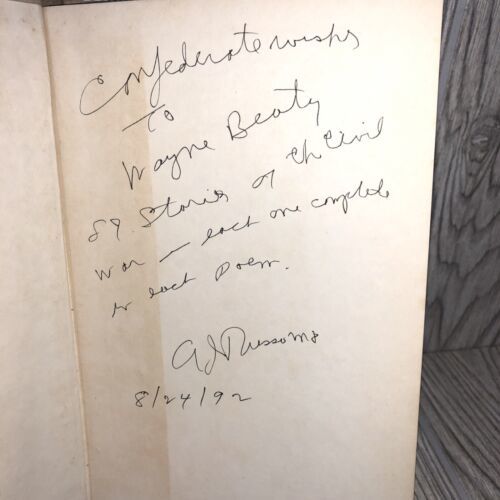 Confederate wishes
To
Wayne Beaty
89 Stories of th Civil
War — each one complete
in each Poem.
8/24/92